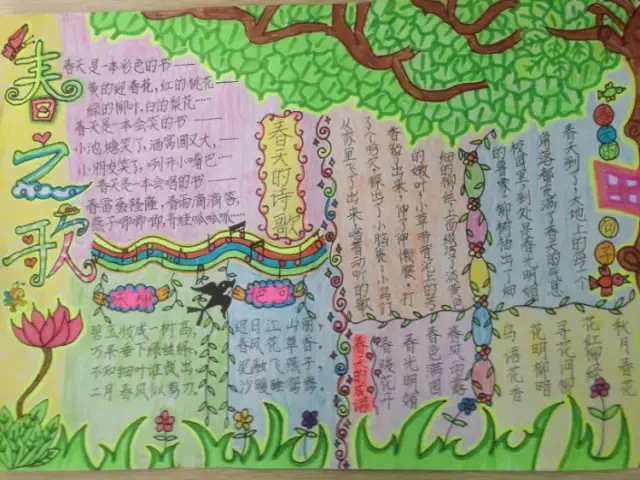 春之歌
春天是一本彩色的书——
黄的迎春花,红的桃花——
绿的柳叶,白的梨花……
春天是一本会笑的书——
小池塘笑了,酒窝圆又大,——
小朋友笑了,咧开小嘴巴…
春天是一本会唱的书——
春雷轰隆隆,春雨滴滴答,
燕子唧唧唧,青蛙呱呱呱…
春天的诗歌
咏柳
碧玉妆成一树高,
万条垂下绿丝绦。
不知细叶谁裁出,
二月春风似剪刀。
绝句
迟日江山丽
春风花草香
泥融飞燕子
沙暖睡鸳鸯
句子
春天到了,大地上的每一个
角落都充满了春天的气息
校园里,到处是春光明媚
的景象,柳树抽出了细
细的柳丝,上面缀了淡黄色
的嫩叶;小草带着泥土的芳
香钻了出来,伸了伸懒腰,打
了个哈欠,探出了小脑袋;小鸟们
从家里飞了出来,唱着动听的歌
春天的成语
秋月春花
花红柳绿
寻花问柳
花明柳暗
鸟语花香
春风雨露
春色满园
春光明媚
春暖花开